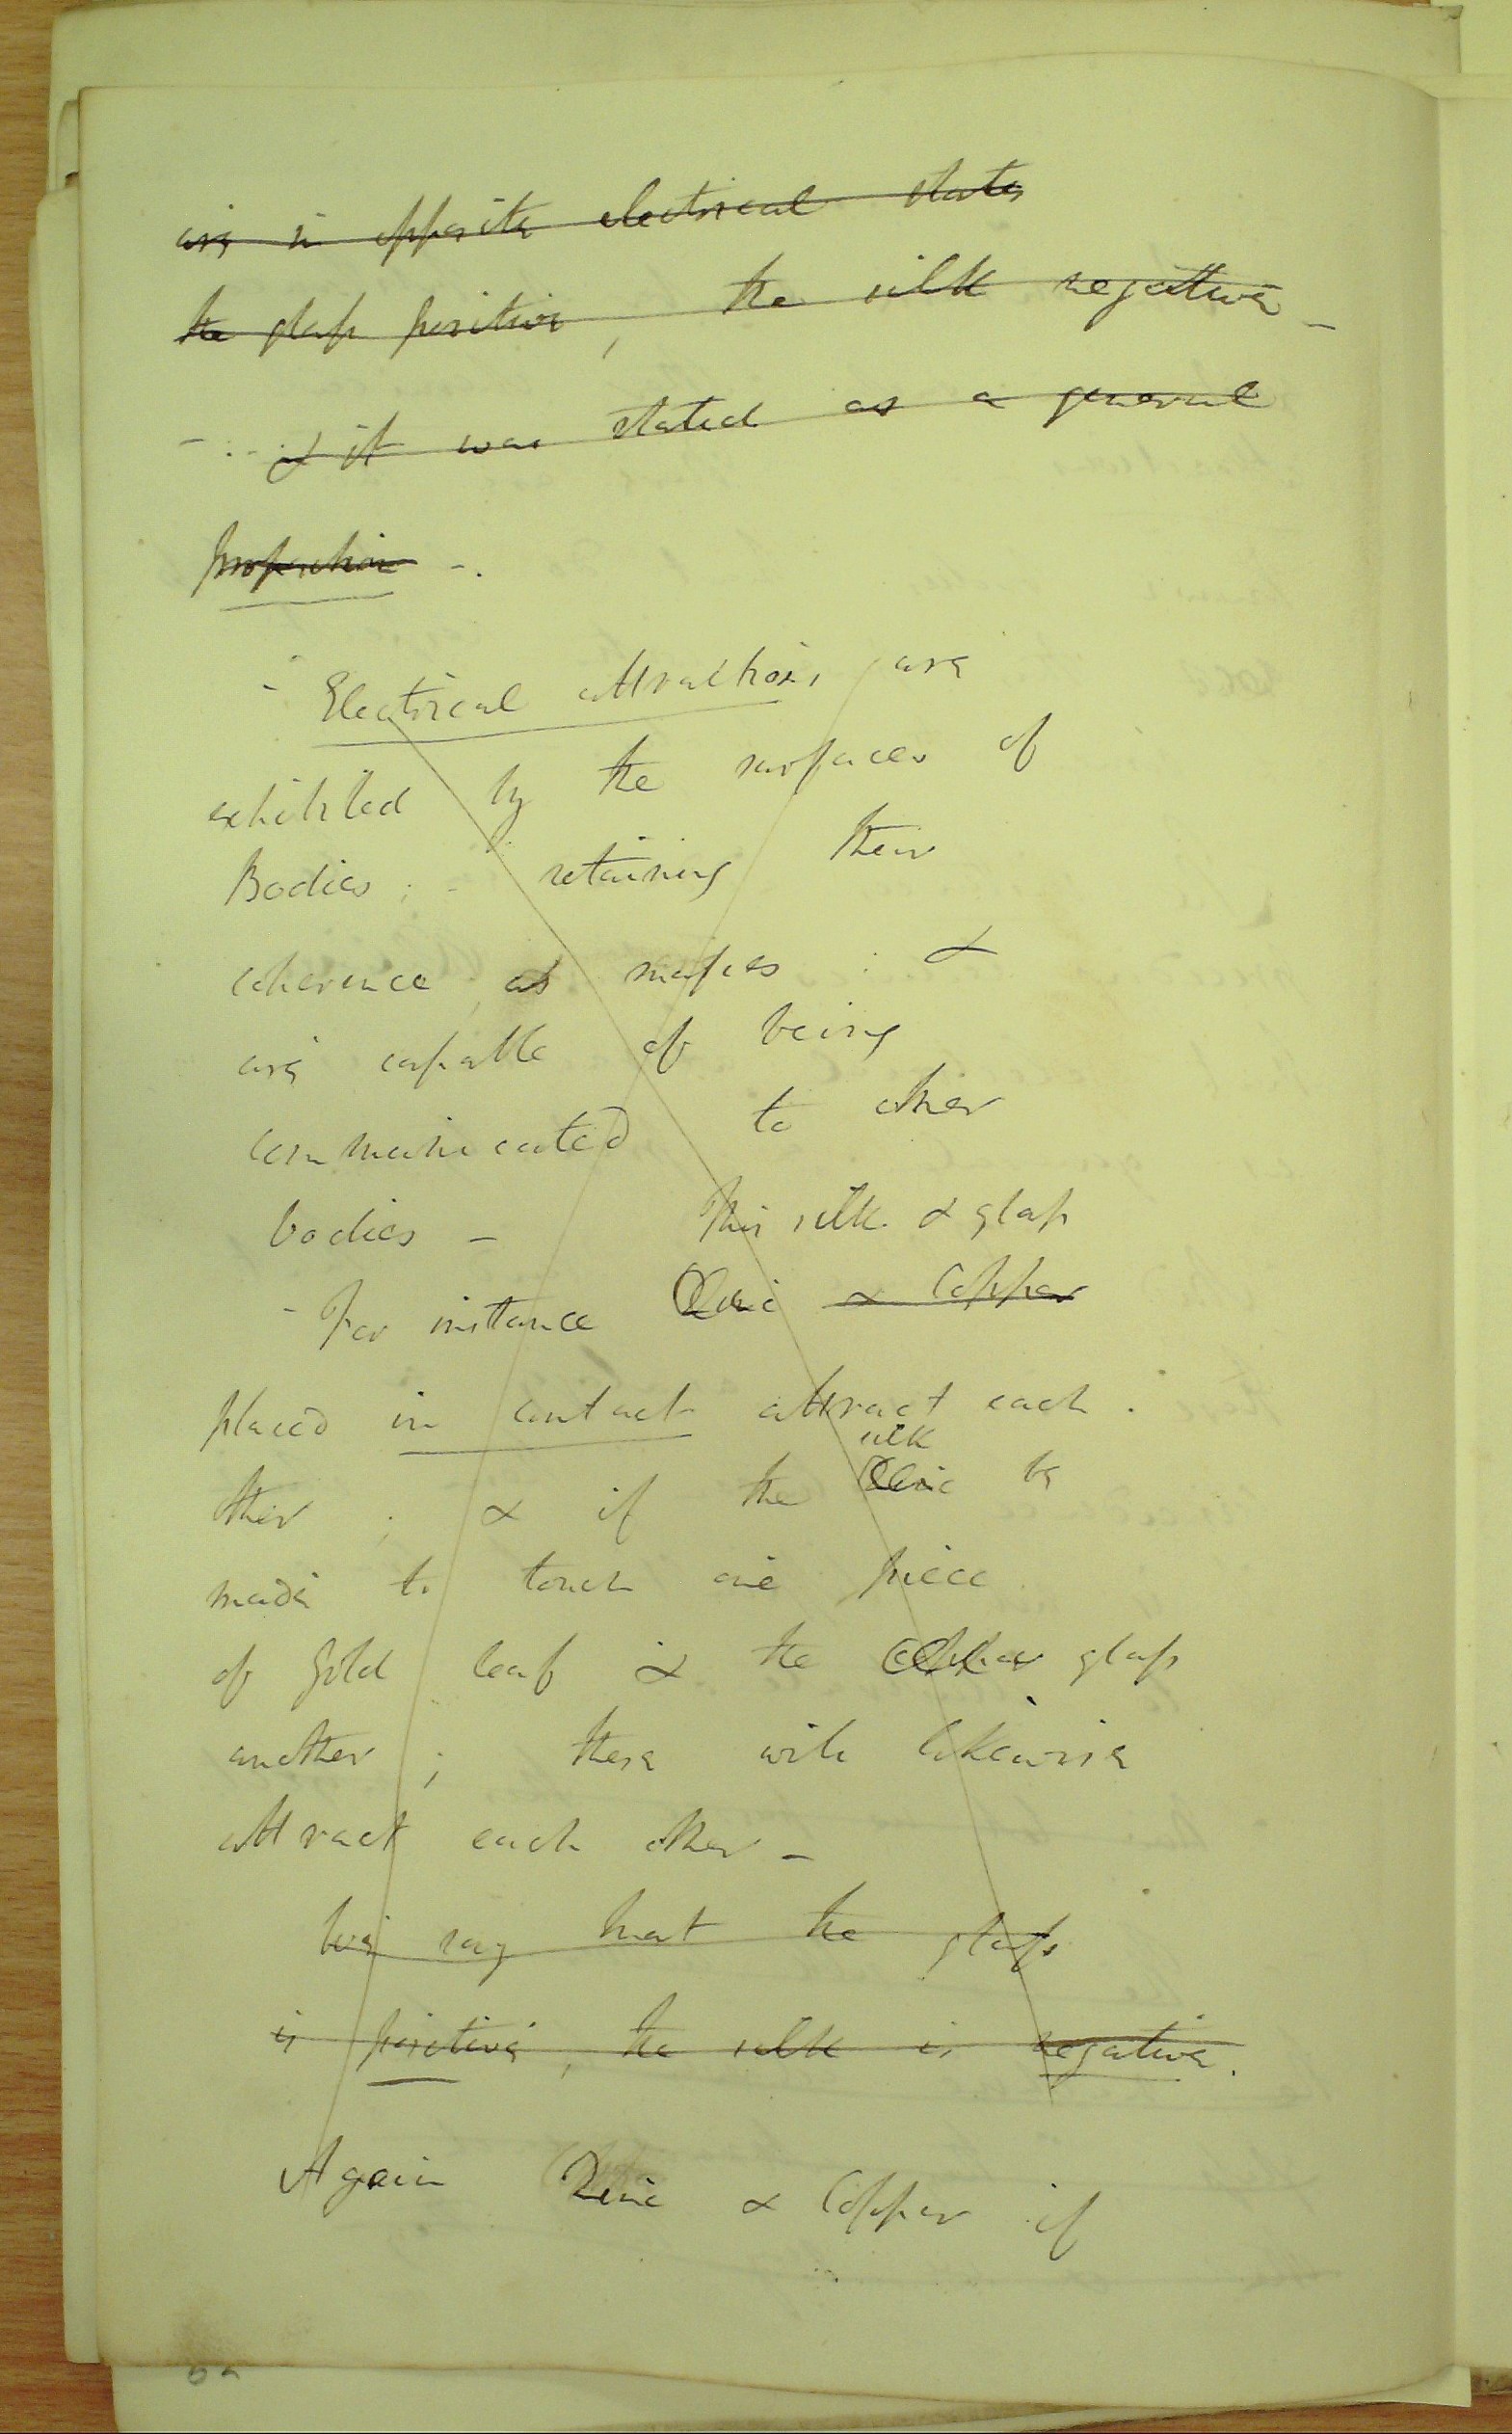 are in opposite electrical states
the glass positive, the silk negative _
- .. & it was stated as a general
proposition -.
- Electrical attractions, are
exhibited by the surfaces of
Bodies ; - retaining their
coherence as masses : &
are capable of being
communicated to other
bodies - Thus silk & glass
- For instance Zinc & Copper
placed in contact attract each
silk
other ; & if the Zinc be
made to touch one piece
of gold leaf & the Copper glass
another ; these will likewise
attract each other -
We say that the glass
is positive, the silk is negative.
Again Zinc & Copper if